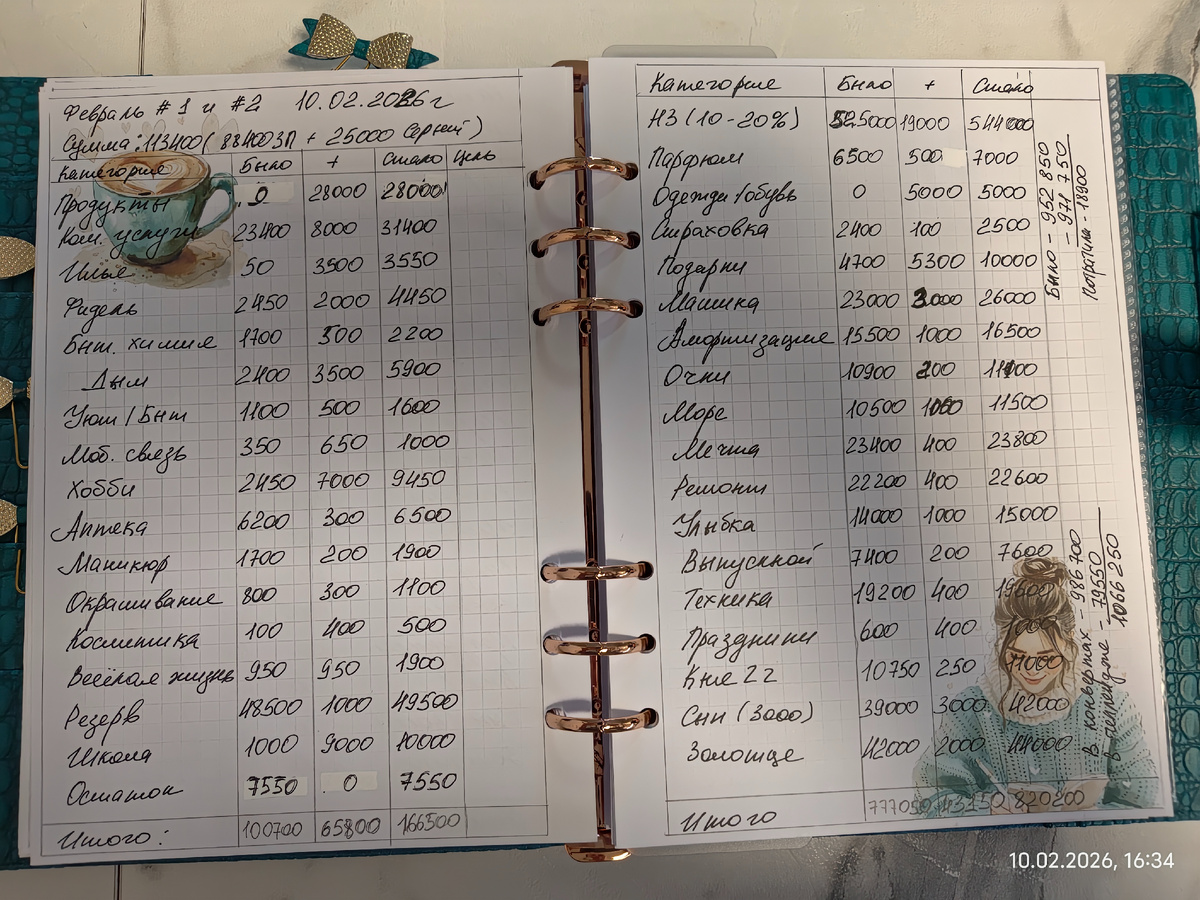 Февраль #1 и #2 10.02.2026г
Сумма: 113400 (88400 ЗП + 25000 Сергей)
Категория Было + Стало Цель
Продукты 0 28000 28000
Ком. услуги 23400 8000 31400
Илье 50 3500 3550
Фидель 2450 2000 4450
Быт. химия 1700 500 2200
Дым 2400 3500 5900
Уют / Быт 1100 500 1600
Моб. связь 350 650 1000
Хобби 2450 7000 9450
Аптека 6200 300 6500
Маникюр 1700 200 1900
Окрашивание 800 300 1100
Косметика 100 400 500
Весёлая жизнь 950 950 1900
Резерв 48500 1000 49500
Школа 1000 9000 10000
Остаток 7550 0 7550
Итого: 100700 65800 166500
Категория Было + Стало
НЗ (10-20%) 525000 19000 544000
Парфюм 6500 500 7000
Одежда/обувь 0 5000 5000
Страховка 2400 100 2500
Подарки 4700 5300 10000
Машина 23000 3000 26000
Амортизация 15500 1000 16500
Очки 10900 200 11100
Море 10500 1000 11500
Мечта 23400 400 23800
Ремонт 22200 400 22600
Улыбка 14000 1000 15000
Выпускной 7400 200 7600
Техника 19200 400 19600
Праздники 600 400
Кые 22 10750 250 11000
Сын (3000) 39000 3000 42000
Золотце 42000 2000 44000
Итого 777050 43150 820200
Было - 952 850
- 971 750
Потратила - 18900
В конвертах - 986 700
В челлендже - 79550
1066 250
10.02.2026, 16:34